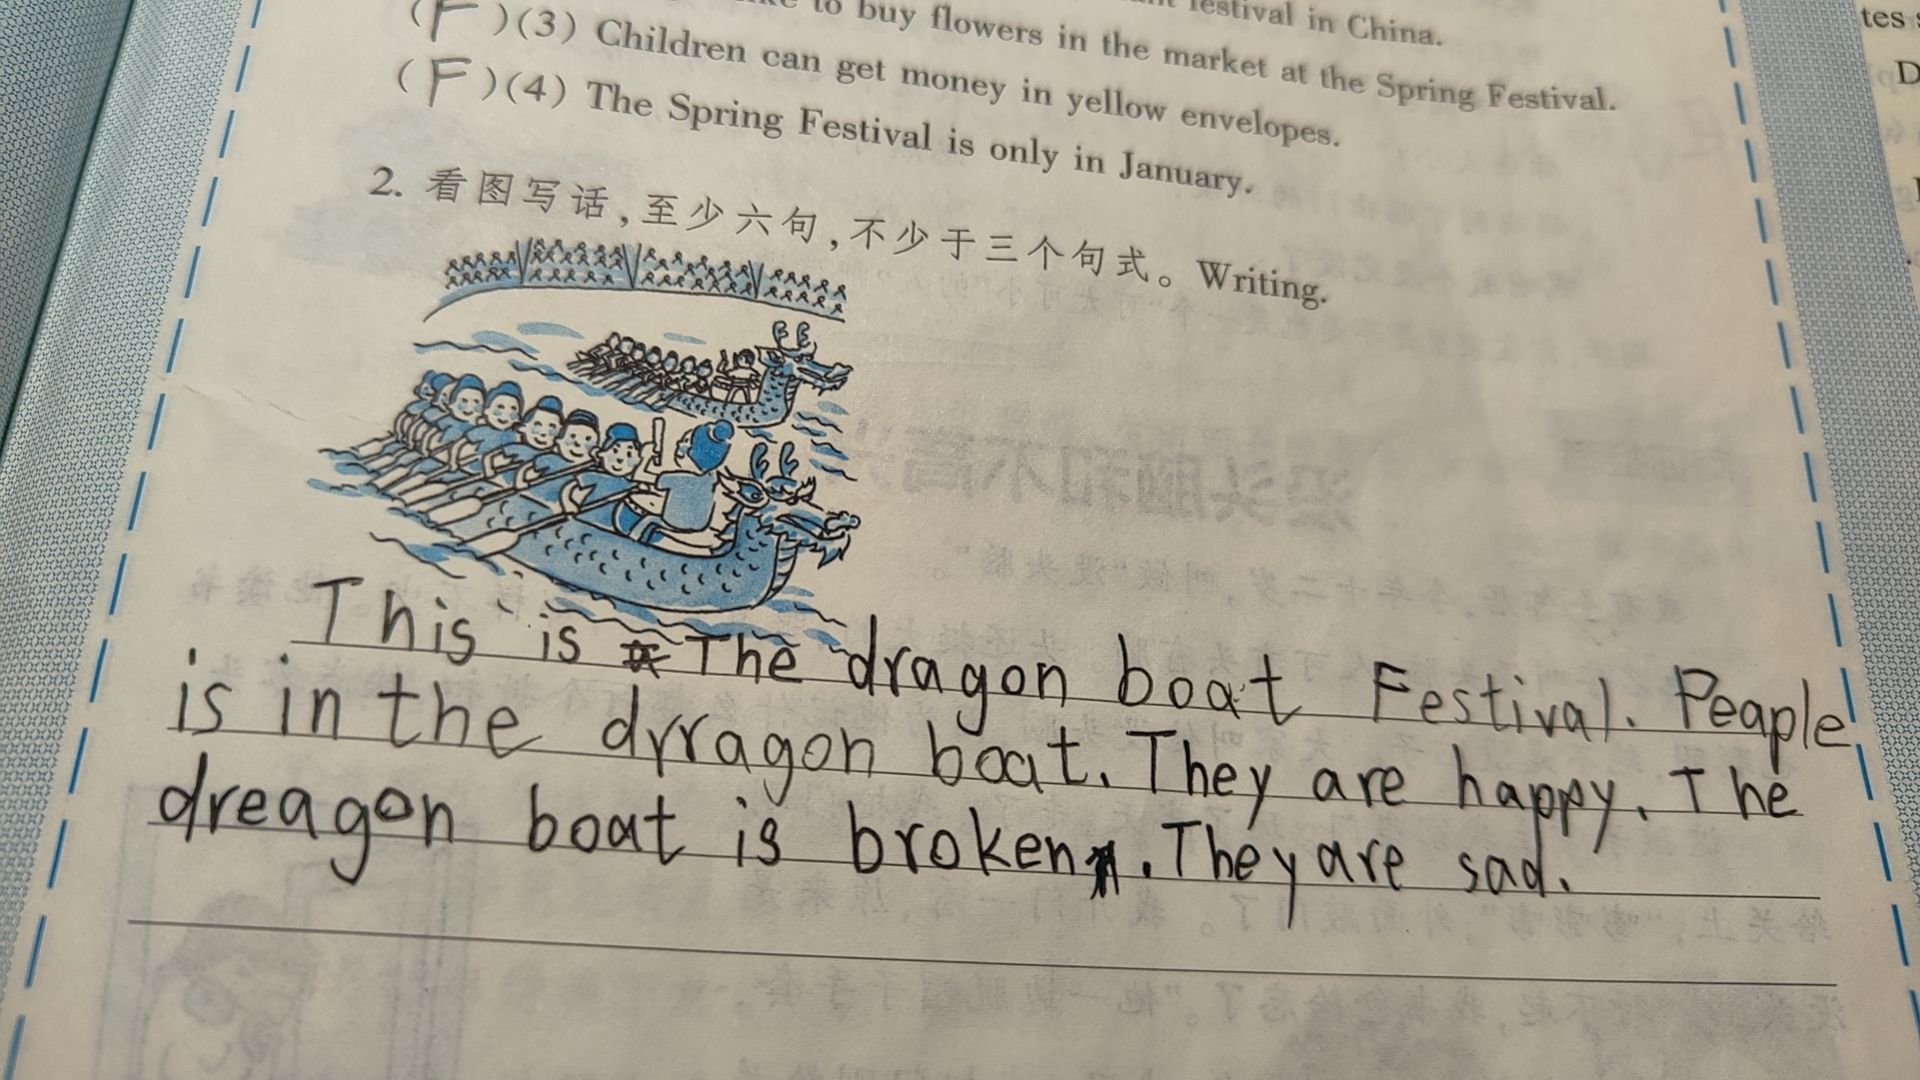 festival in China.
to buy flowers in the market at the Spring Festival.
(F)(3) Children can get money in yellow envelopes.
(F)(4) The Spring Festival is only in January.
2. 看图写话,至少六句,不少于三个句式。Writing.
This is The dragon boat Festival. Peaple
is in the dyragon boat. They are happy. The
dreagon boat is broken. They are sad.
tes
D